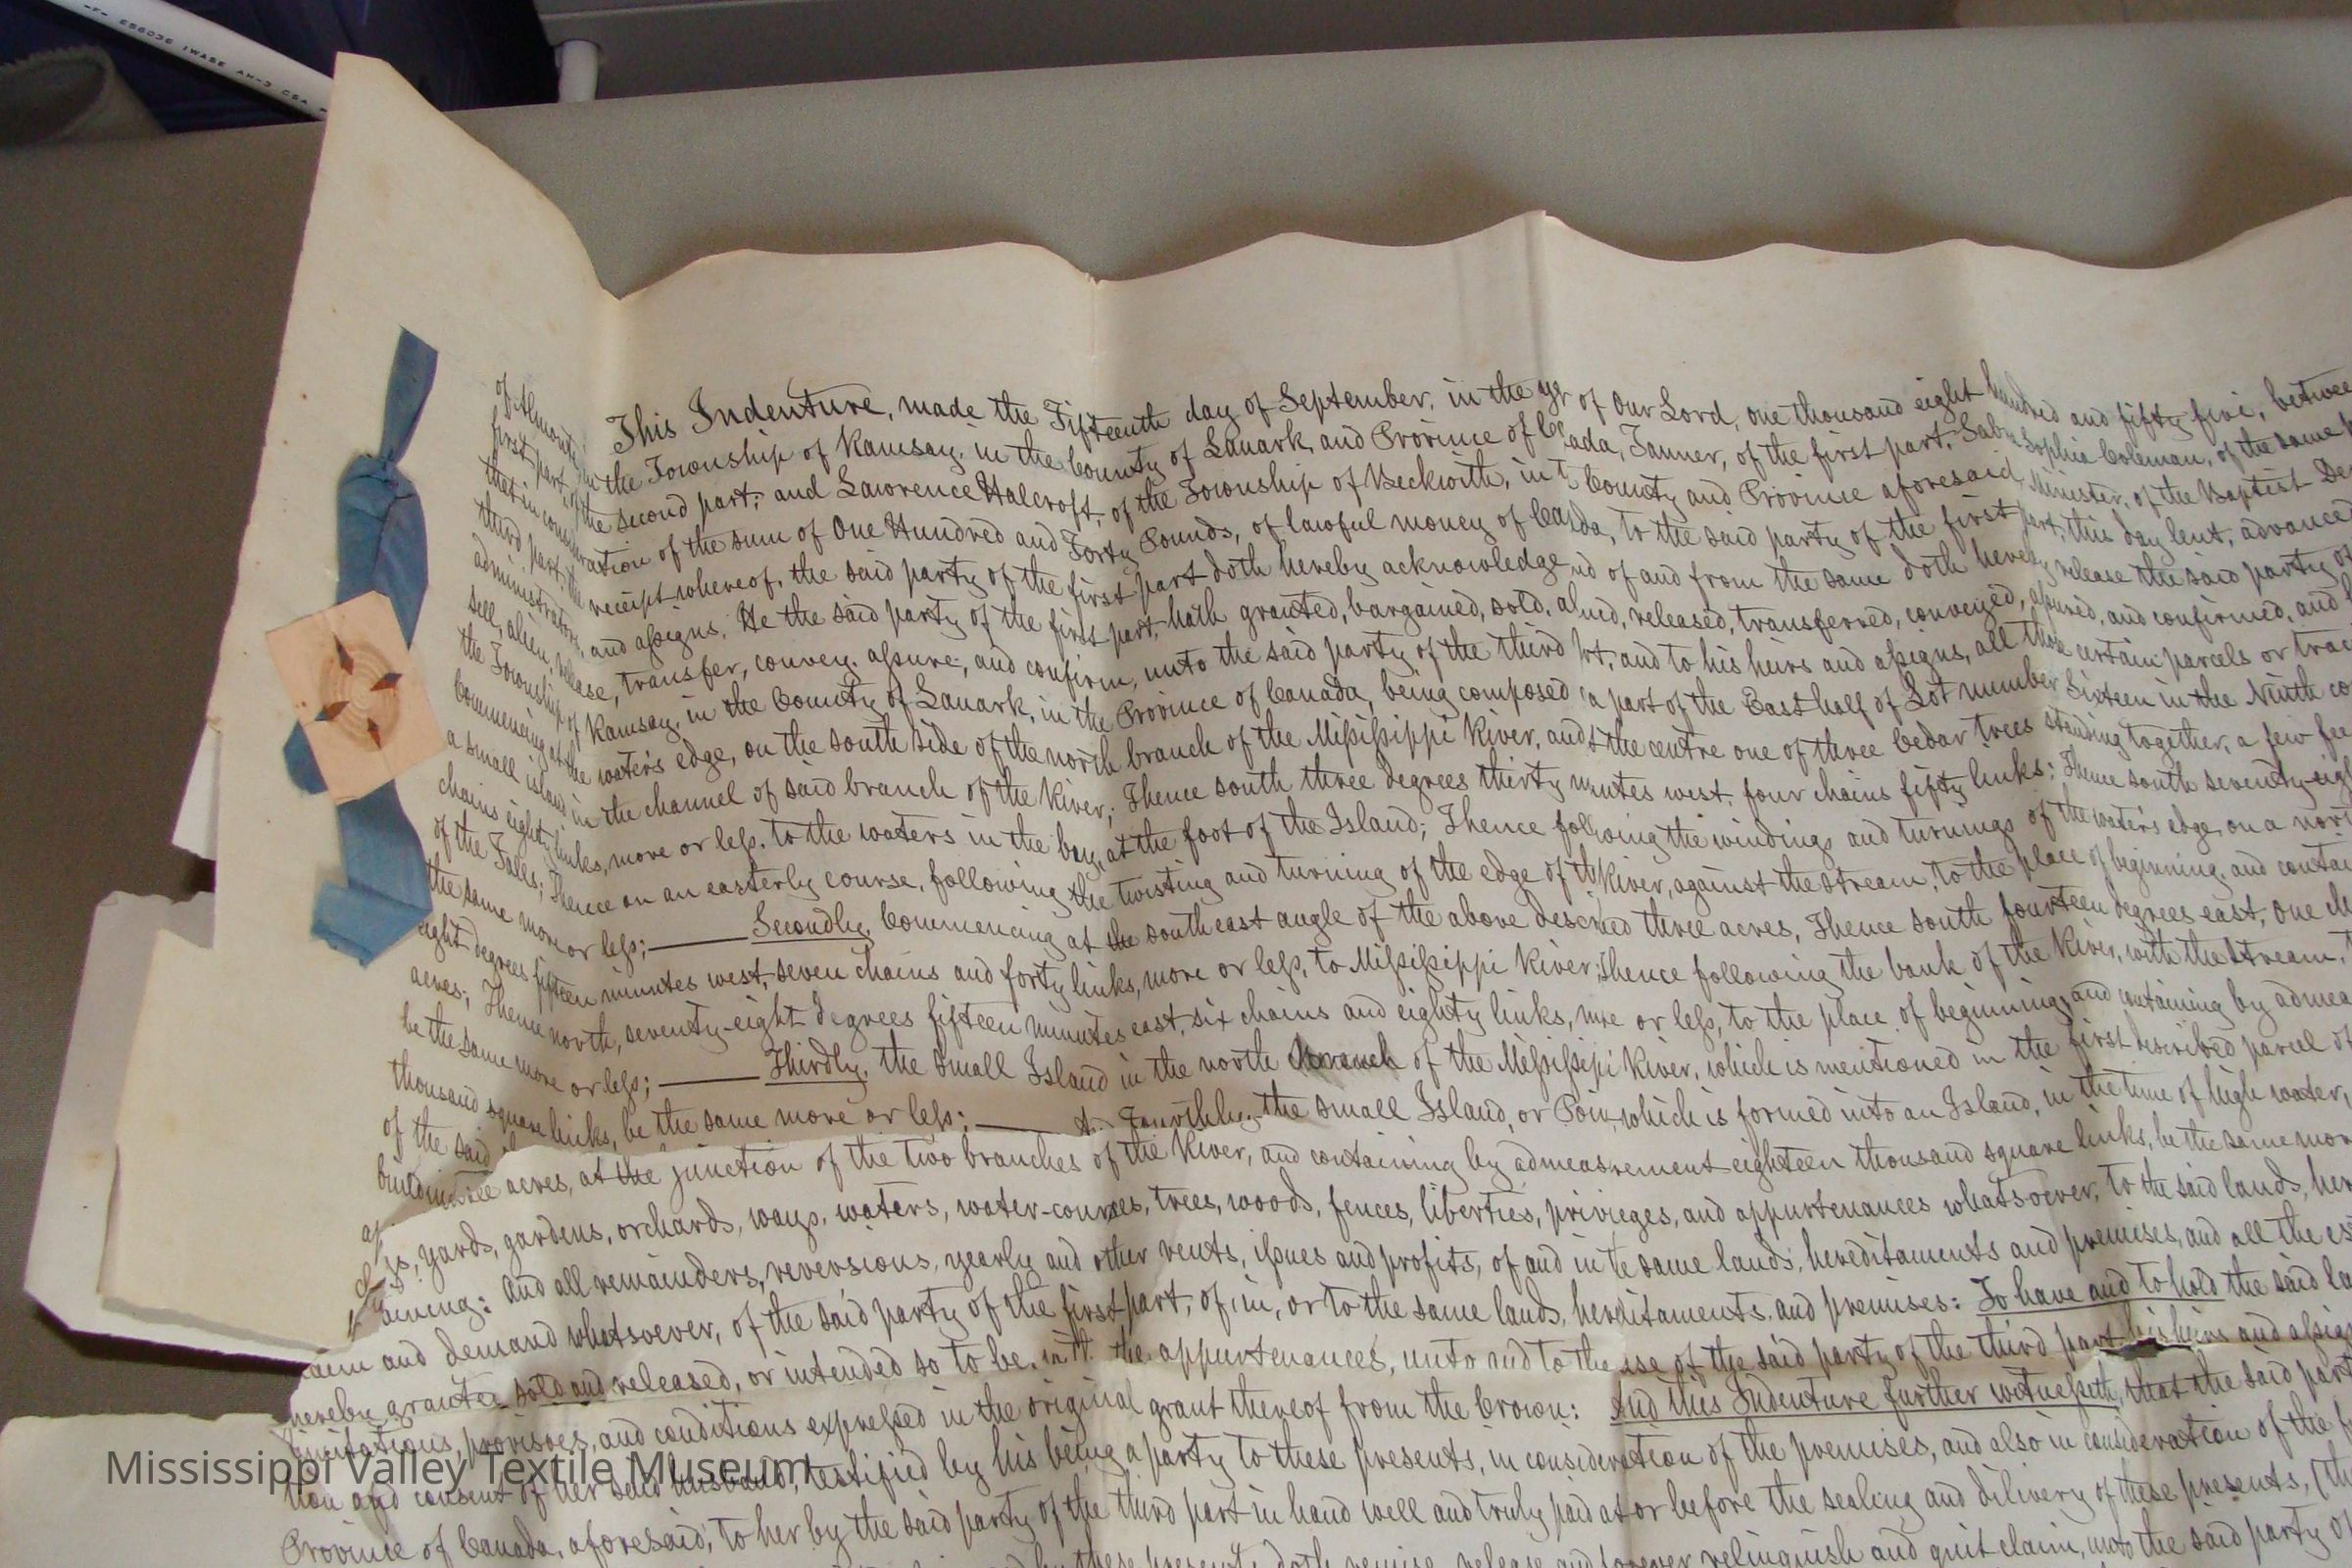 ES6036 IWASE AH-3 CSA
This Indenture, made the Fifteenth day of September, in the of Our Lord, one thousand eight hundred and fifty five, between
of Almonte, in the Township of Ramsay, in the County of Lanark, and Province of Canada, Tanner, of the first part, Sabra Sophia Coleman, of the same
first part, of the second part; and Lawrence Halcroft, of the Township of Beckwith, in County and Province aforesaid, Minister, of the Baptist
that in consideration of the sum of One Hundred and Forty Pounds, of lawful money of Canada, to the said party of the first part, this day lent, advanced
third part, the receipt whereof, the said party of the first part doth hereby acknowledge of and from the same doth hereby release the said party of
administrators, and assigns, He the said party of the first part, hath granted, bargained, sold, released, transferred, conveyed, assured, and confirmed, and
sell, alien, release, transfer, convey, assure, and confirm, unto the said party of the third and to his heirs and assigns, all those certain parcels or
the Township of Ramsay, in the County of Lanark, in the Province of Canada, being composed a part of the East half of Lot number Sixteen in the Ninth
Commencing at the water's edge, on the south side of the north branch of the Mississippi River, and the centre one of three Cedar trees standing together, a few
a small island in the channel of said branch of the River; Thence south three degrees thirty minutes west, four chains fifty links; Thence south seventy
chains eighty links, more or less, to the waters in the bay, at the foot of the Island; Thence following the windings and turnings of the water's edge, on a
of the Falls; Thence on an easterly course, following the twisting and turning of the edge of River, against the stream, to the place of beginning, and
the same more or less; Secondly, Commencing at the south east angle of the above three acres, Thence south fourteen degrees east, one
eight degrees fifteen minutes west, seven chains and forty links, more or less, to Mississippi River; Thence following the bank of the River, with the stream,
acres; Thence north, seventy-eight degrees fifteen minutes east, six chains and eighty links, or less, to the place of beginning, and containing by
be the same more or less; Thirdly, the small Island in the north branch of the Mississippi River, which is mentioned in the first described parcel of
thousand square links, be the same more or less; Fourthly, the small Island, or which is formed into an Island, in the time of high water,
of the said three acres, at the junction of the two branches of the River, and containing by admeasurement eighteen thousand square links, be the same more
yards, gardens, orchards, ways, waters, water-courses, trees, woods, fences, liberties, privileges, and appurtenances whatsoever, to the said lands,
and all remainders, reversions, yearly and other rents, issues and profits, of and in same lands, hereditaments and premises, and all the
and demand whatsoever, of the said party of the first part, of, in, or to the same lands, hereditaments, and premises: To have and to hold the said
hereby granted sold and released, or intended so to be, the appurtenances, unto and to the use of the said party of the third part his heirs and
provisoes, and conditions expressed in the original grant thereof from the Crown: And this Indenture further witnesseth, that the said
and consent of her said husband, testified by his being a party to these presents, in consideration of the premises, and also in consideration of the
Province of Canada, aforesaid, to her by the said party of the third part in hand well and truly paid at or before the sealing and delivery of these presents,
these doth remise, release and forever relinquish and quit claim, unto the said party
Mississippi Valley Textile Museum